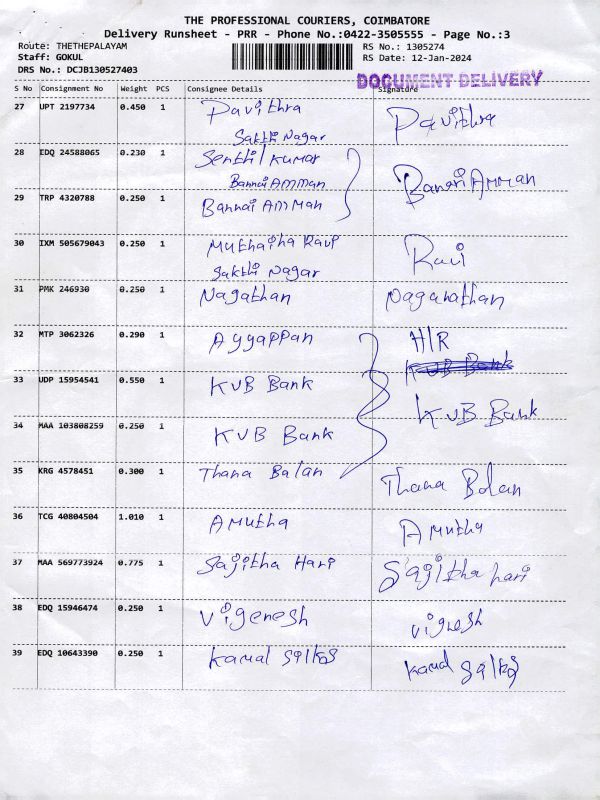 THE PROFESSIONAL COURIERS, COIMBATORE
Delivery Runsheet - PRR - Phone No.:0422-3505555 - Page No.:3
Route: THETHEPALAYAM
RS No.: 1305274
Staff: GOKUL
RS Date: 12-Jan-2024
DRS No.: DCJB130527403
DOCUMENT DELIVERY
S No Consignment No Weight PCS Consignee Details Signature
27 UPT 2197734 0.450 1 Pavithra Pavithra
Sakthi Nagar
28 EDQ 24588065 0.230 1 Senthil Kumar
Bannai AMMan Banari AMMan
29 TRP 4320788 0.250 1 Bannai AMMan
30 IXM 505679043 0.250 1 Muthaiha Ravi Ravi
Sakthi Nagar
31 PMK 246930 0.250 1 Nagathan naganathan
32 MTP 3062326 0.290 1 Ayyappan H/R
KUB Bank
33 UDP 15954541 0.550 1 KVB Bank KVB Bank
34 MAA 103808259 0.250 1 KVB Bank
35 KRG 4578451 0.300 1 Thana Balan Thana Bolan
36 TCG 40804504 1.010 1 Amutha Amutha
37 MAA 569773924 0.775 1 Sajitha Hari Sajitha hari
38 EDQ 15946474 0.250 1 Vigenesh vignesh
39 EDQ 10643390 0.250 1 Kamal Kamal